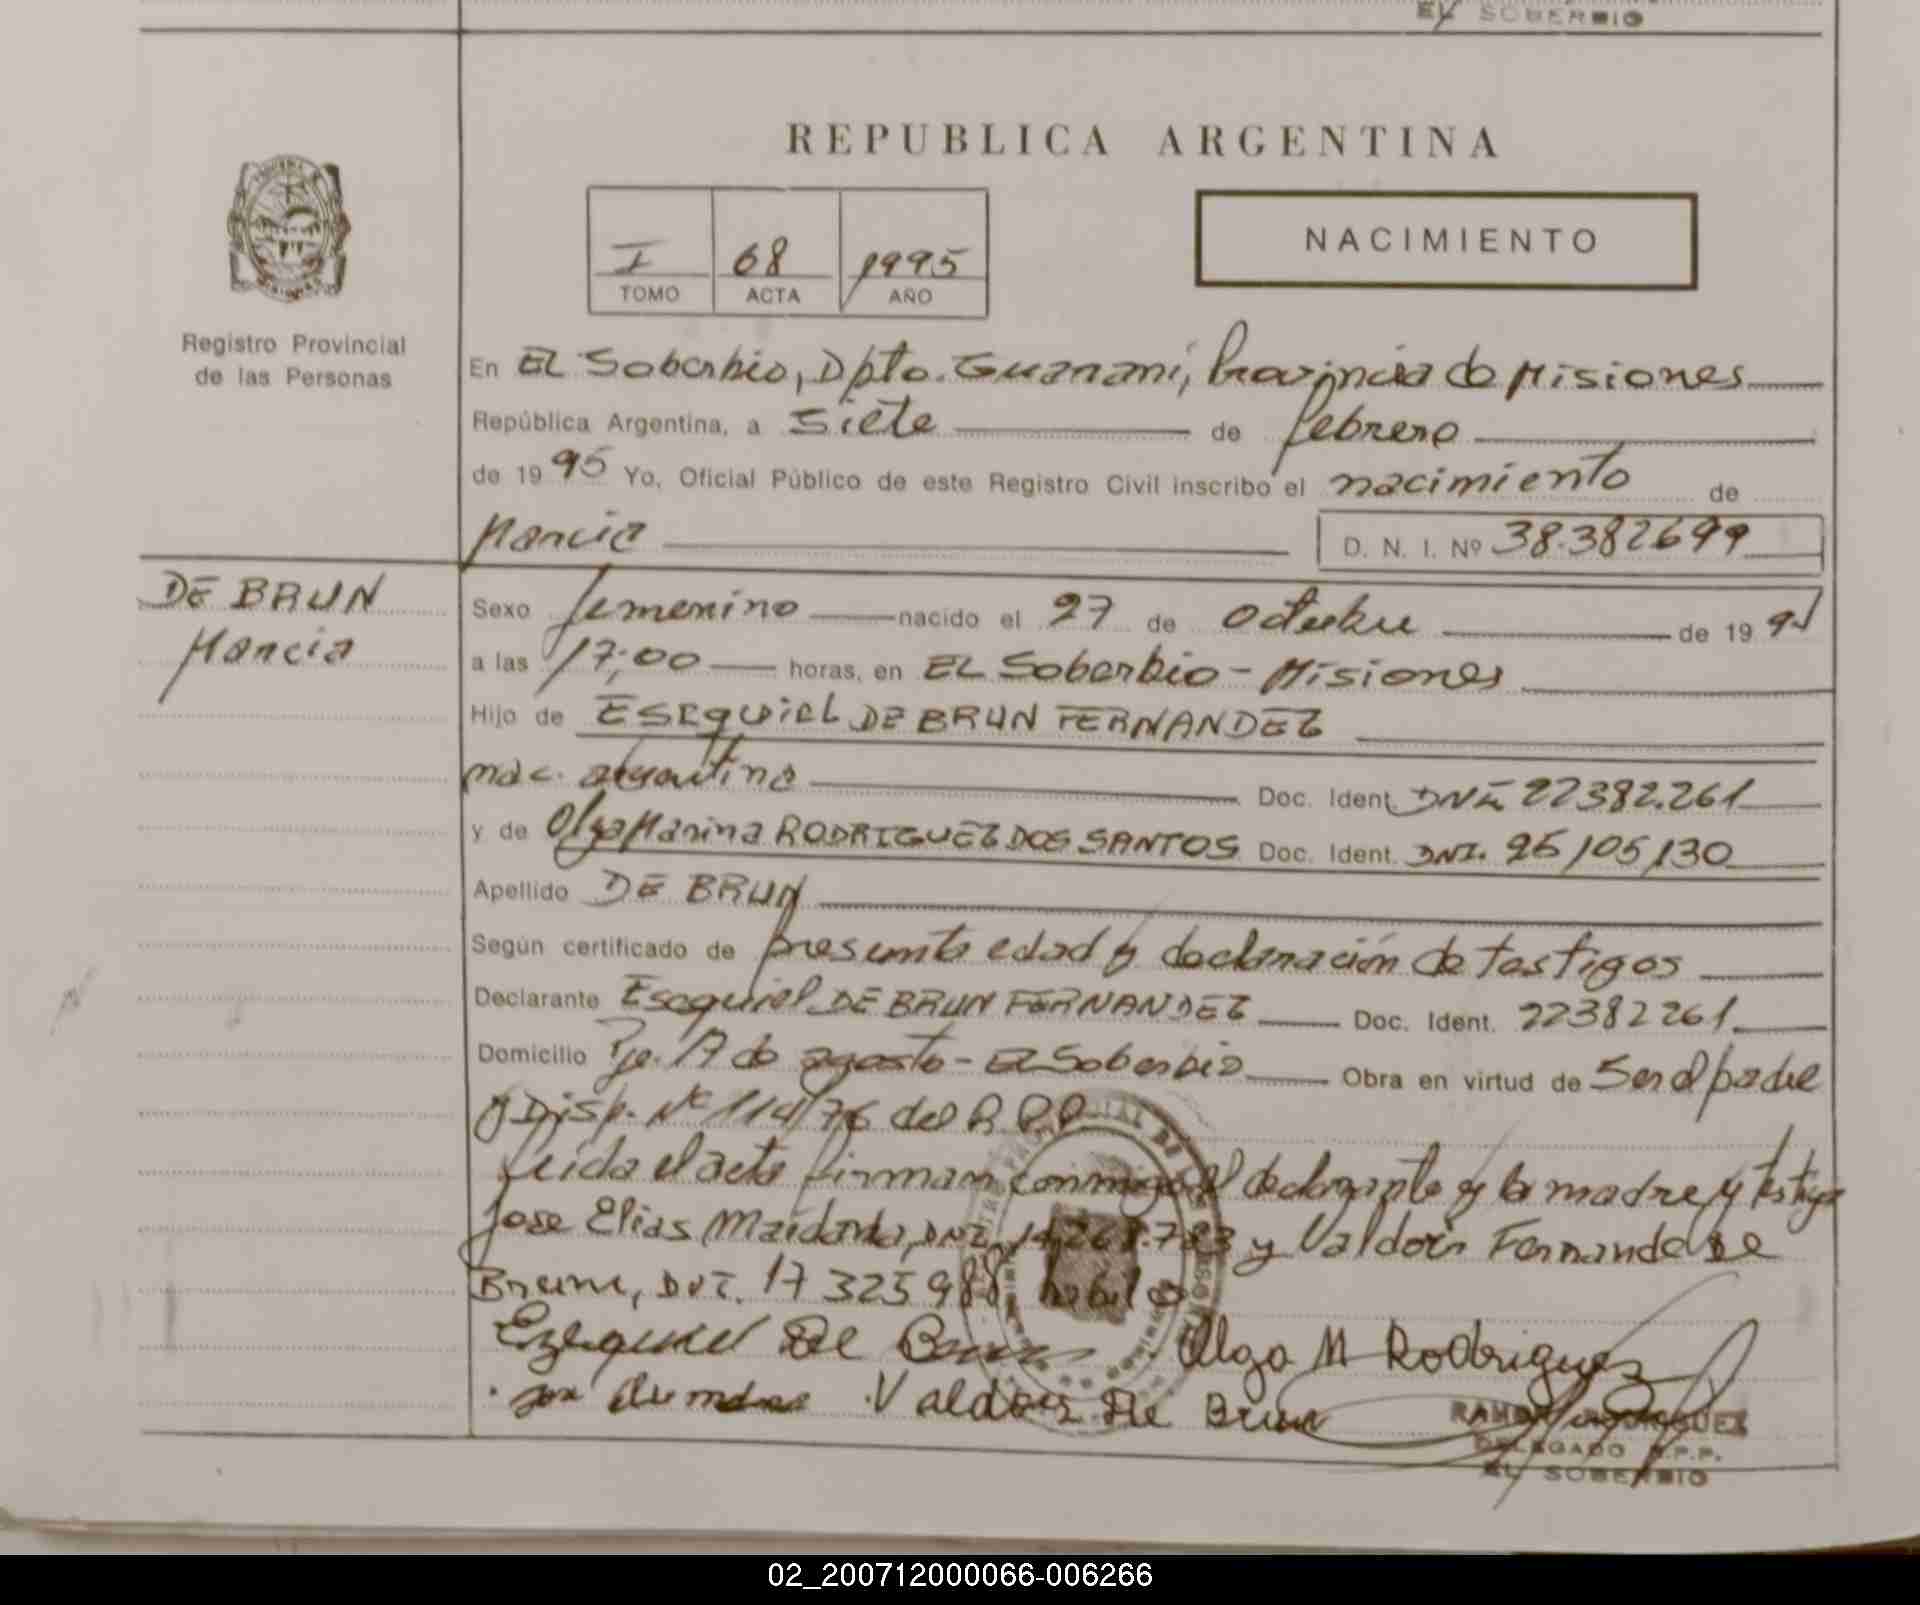 EL SOBERBIO
REPUBLICA ARGENTINA
NACIMIENTO
I 68 1995
TOMO ACTA AÑO
Registro Provincial
de las Personas
En EL Soberbio, Dpto. Guarani, Provincia de Misiones
República Argentina, a siete de febrero
de 19 95 Yo, Oficial Público de este Registro Civil inscribo el nacimiento de
Marcia D. N. I. Nº 38.382699
DE BRUN
Marcia
Sexo femenino nacido el 27 de Octubre de 19 94
a las 17,00 horas, en EL Soberbio - Misiones
Hijo de ESEQUIEL DE BRUN FERNANDEZ
nac. argentina Doc. Ident. DNI 22382.261
y de Olga Marina RODRIGUEZ DOS SANTOS Doc. Ident. DNI. 25,105,130
Apellido DE BRUN
Según certificado de presunta edad y declaración de testigos
Declarante Esequiel DE BRUN FERNANDEZ Doc. Ident. 22382261
Domicilio Pje. 17 de agosto - El Soberbio Obra en virtud de Ser el padre
y Disp. Nº 114/76 del R.P.P
Leida el acta firman conmigo el declarante y la madre y testigos
Jose Elias DNI. y Valdoir Fernande De
Brum, DNI. 17 325988
Ezequiel De Brun Olga M Rodriguez
Valdoir De Brun
RAMON RODRIGUEZ
DELEGADO R.P.P.
EL SOBERBIO
02_200712000066-006266